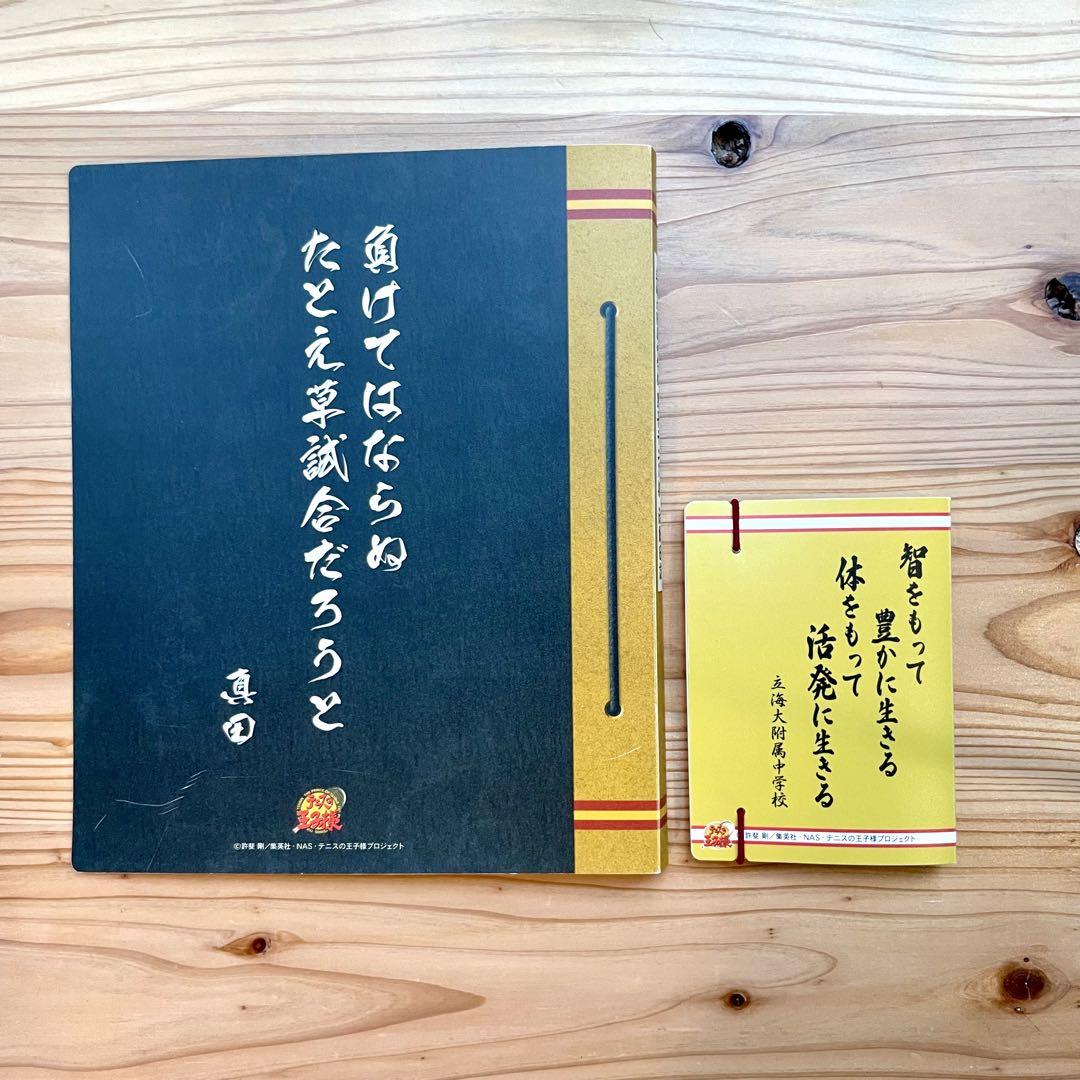 負けてはならぬ
たとえ草試合だろうと
真田
テニスの
王子様
©許斐 剛／集英社・NAS・テニスの王子様プロジェクト
智をもって
豊かに生きる
体をもって
活発に生きる
立海大附属中学校
テニスの
王子様
許斐 剛／集英社・NAS・テニスの王子様プロジェクト